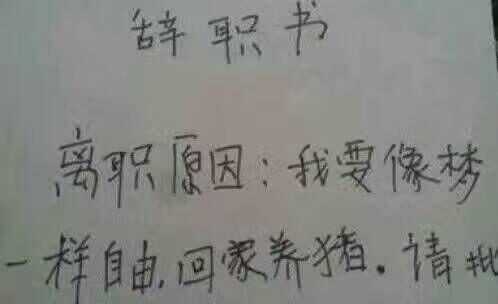 辞职书
离职原因：我要像梦
一样自由，回家养猪。请批